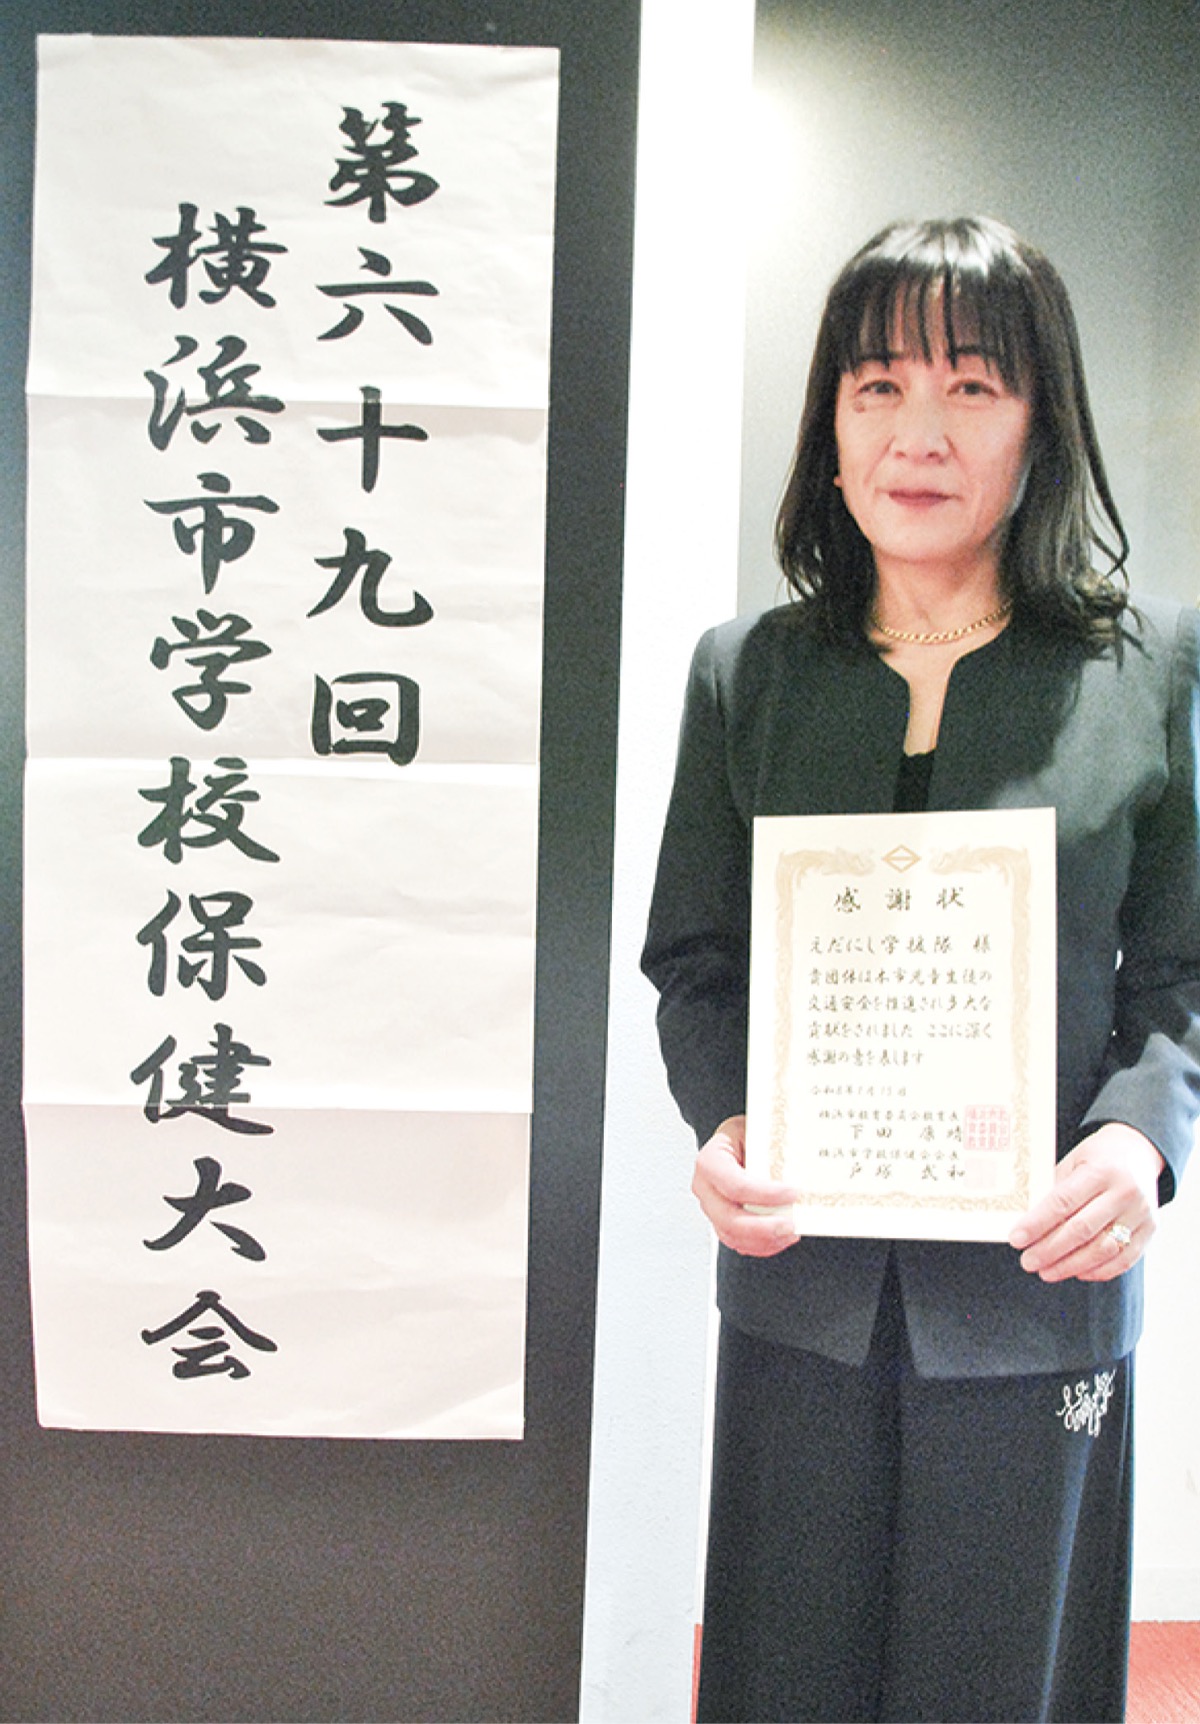 第六十九回
横浜市学校保健大会
感謝状
えだにし学援隊 様
貴団体は本市児童生徒の
交通安全を推進され多大な
貢献をされました ここに深く
感謝の意を表します
横浜市教育委員会教育長
下田 康晴
横浜市学校保健会会長
戸塚 武和